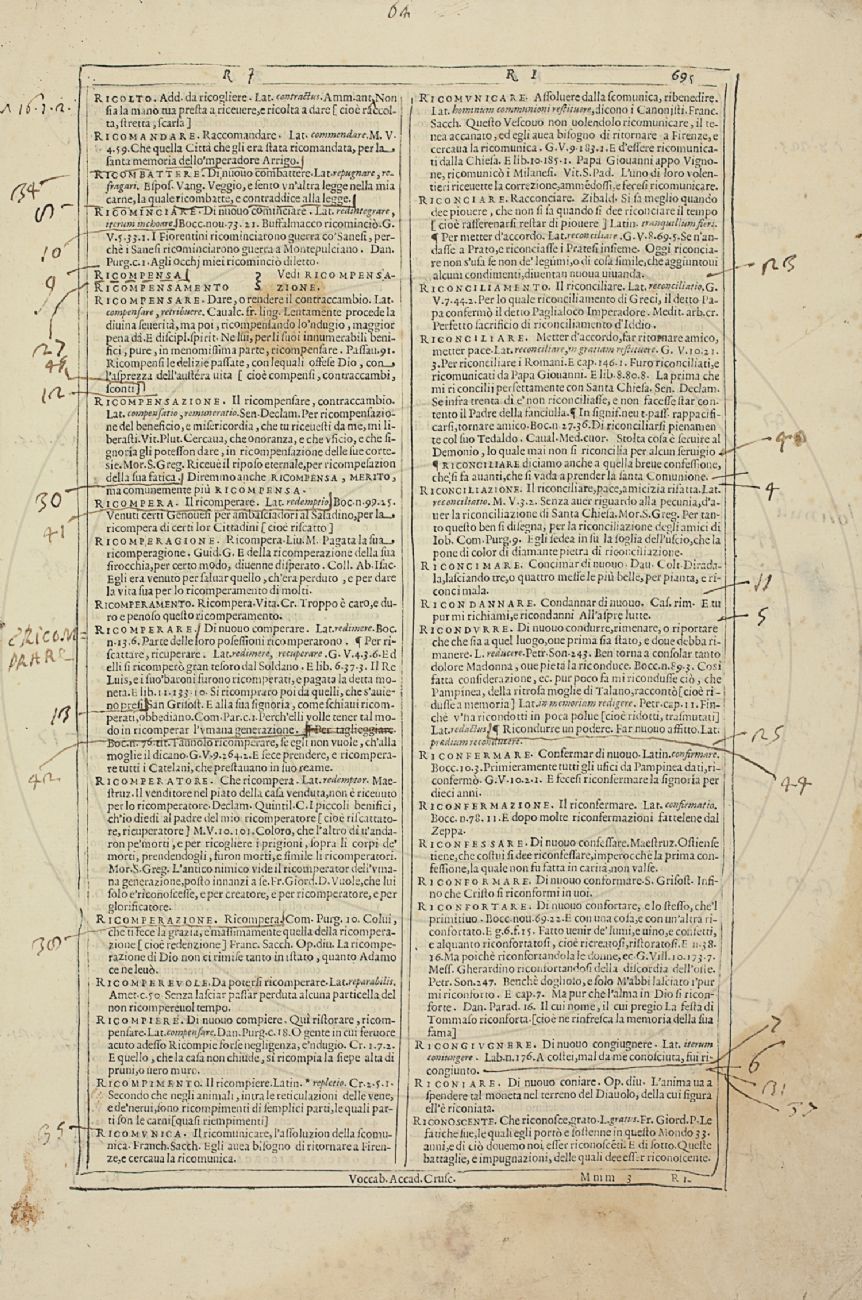 64
R I
R I
695
RICOLTO. Add. da ricogliere. Lat. contractus. Amm. ant. Non
sia la mano tua presta a riceuere, e ricolta a dare [ cioè raccol-
ta, stretta, scarsa ]
RICOMANDARE. Raccomandare. Lat. commendare. M. V.
4.59. Che quella Città che gli era stata ricomandata, per la
santa memoria dello'mperadore Arrigo.
RICOMBATTERE. Di nuouo combattere. Lat. repugnare, re-
fragari. Espos. Vang. Veggio, e sento vn'altra legge nella mia
carne, la quale ricombatte, e contraddice alla legge.
RICOMINCIARE. Di nuouo cominciare. Lat. redintegrare,
iterum inchoare. Bocc. nou. 73. 21. Buffalmacco ricominciò. G.
V. 5.33.1. I Fiorentini ricominciarono guerra co'Sanesi, per-
chè i Sanesi ricominciarono guerra a Montepulciano. Dan.
Purg. c. 1. Agli occhi miei ricominciò diletto.
RICOMPENSA Vedi RICOMPENSA-
RICOMPENSAMENTO ZIONE.
RICOMPENSARE. Dare, o rendere il contraccambio. Lat.
compensare, retribuere. Caualc. fr. ling. Lentamente procede la
diuina seuerità, ma poi, ricompensando lo'ndugio, maggior
pena dà. E discipl. spirit. Ne suoi, per li suoi innumerabili beni-
fici, pure, in menomissima parte, ricompensare. Passau. 91.
Ricompensi le delizie passate, con le quali offese Dio, con
l'asprezza dell'austèra uita [ cioè compensi, contraccambi,
sconti]
RICOMPENSAZIONE. Il ricompensare, contraccambio.
Lat. compensatio, remuneratio. Sen. Declam. Per ricompensazio-
ne del beneficio, e misericordia, che tu riceuesti da me, mi li-
berasti. Vit. Plut. Cercaua, che onoranza, e che vficio, e che si-
gnoria gli potesson dare, in ricompensazione delle sue corte-
sie. Mor. S. Greg. Riceue il riposo eternale, per ricompesazion
della sua fatica. Diremmo anche RICOMPENSA, MERITO,
ma comunemente più RICOMPENSA.
RICOMPERA. Il ricomperare. Lat. redemptio. Boc. n. 99. 25.
Venuti certi Genouesi per ambasciadori al Saladino, per la
ricompera di certi lor Cittadini [ cioè riscatto]
RICOMPERAGIONE. Ricompera. Liu. M. Pagata la sua
ricomperagione. Guid. G. E della ricomperazione della sua
sirocchia, per certo modo, diuenne disperato. Coll. Ab. Isac.
Egli era venuto per saluar quello, ch'era perduto, e per dare
la vita sua per lo ricomperamento di molti.
RICOMPERAMENTO. Ricompera. Vita. Cr. Troppo è caro, e du-
ro e penoso questo ricomperamento.
RICOMPERARE. Di nuouo comperare. Lat. redimere. Boc.
n. 13. 6. Parte delle loro possessioni ricomperarono. ¶ Per ri-
scattare, ricuperare. Lat. redimere, recuperare. G. V. 4. 3. 6. Ed
elli si ricomperò gran tesoro dal Soldano. E lib. 6. 37. 3. Il Re
Luis, e i suo'baroni furono ricomperati, e pagata la detta mo-
neta. E lib. 11. 133. 10. Si ricompraro poi da quelli, che s'auie-
no presi. San Grisost. E alla sua signoria, come schiaui ricom-
perati, obbediano. Com. Par. c. 1. Perch'elli volle tener tal mo-
do in ricomperar l'vmana generazione. Per taglieggiare.
Boc. n. 76. tit. Fannolo ricomperare, se egli non vuole, ch'alla
moglie il dicano. G. V. 9. 264. 2. E fece prendere, e ricompera-
re tutti i Catelani, che prestauano in suo reame.
RICOMPERATORE. Che ricompera. Lat. redemptor. Mae-
struz. Il venditore nel piato della casa venduta, non è riceuuto
per lo ricomperatore. Declam. Quintil. C. I piccoli benifici,
ch'io diedi al padre del mio ricomperatore [ cioè riscattato-
re, ricuperatore ] M. V. 10. 101. Coloro, che l'altro dì u'anda-
ron pe'morti, e per ricogliere i prigioni, sopra li corpi de'
morti, prendendogli, furon morti, e simile li ricomperatori.
Mor. S. Greg. L'antico nimico vide il ricomperator dell'vma-
na generazione, posto innanzi a se. Fr. Giord. D. Vuole, che lui
solo e'riconoscesse, e per creatore, e per ricomperatore, e per
glorificatore.
RICOMPERAZIONE. Ricompera. Com. Purg. 10. Colui,
che ti fece la grazia, e massimamente quella della ricompera-
zione [ cioè redenzione ] Franc. Sacch. Op. diu. La ricompe-
razione di Dio non ci rimise tanto in istato, quanto Adamo
ce ne leuò.
RICOMPEREVOLE. Da potersi ricomperare. Lat. reparabilis.
Amet. c. 50. Senza lasciar passar perduta alcuna particella del
non ricompereuol tempo.
RICOMPIERE. Di nuouo compiere. Quì ristorare, ricom-
pensare. Lat. compensare. Dan. Purg. c. 18. O gente in cui feruore
acuto adesso Ricompie forse negligenza, e'ndugio. Cr. 1. 7. 2.
E quello, che la casa non chiude, si ricompia la siepe alta di
pruni, o uero muro.
RICOMPIMENTO. Il ricompiere. Latin. * repletio. Cr. 2. 5. 1.
Secondo che negli animali, intra le reticulazioni delle vene,
e de'nerui, sono ricompimenti di semplici parti, le quali par-
ti son le carni [quasi riempimenti]
RICOMVNICA. Il ricomunicare, l'assoluzion della scomu-
nica. Franch. Sacch. Egli auea bisogno di ritornare a Firen-
ze, e cercaua la ricomunica.
RICOMVNICARE. Assoluere dalla scomunica, ribenedire.
Lat. hominem communioni restituere, dicono i Canonisti. Franc.
Sacch. Questo Vescouo non uolendolo ricomunicare, il te-
nea accanato, ed egli auea bisogno di ritornare a Firenze, e
cercaua la ricomunica. G. V. 9. 183. 1. E d'essere ricomunica-
ti dalla Chiesa. E lib. 10. 185. 1. Papa Giouanni appo Vigno-
ne, ricomunicò i Milanesi. Vit. S. Pad. L'uno di loro volen-
tieri riceuette la correzione, ammëdossi, e fecesi ricomunicare.
RICONCIARE. Racconciare. Zibald. Si sa meglio quando
dee piouere, che non si sa quando si dee riconciare il tempo
[ cioè rasserenarsi, restar di piouere ] Latin. tranquillum fieri.
¶ Per metter d'accordo. Lat. reconciliare. G. V. 8. 69. 5. Se n'an-
dasse a Prato, e riconciasse i Pratesi insieme. Oggi riconcia-
re non s'usa se non de'legumi, o di cosa simile, che aggiuntoui
alcun condimenti, diuentan nuoua uiuanda.
RICONCILIAMENTO. Il riconciliare. Lat. reconciliatio. G.
V. 7. 44. 2. Per lo quale riconciliamento di Greci, il detto Pa-
pa confermò il detto Paglialoco Imperadore. Medit. arb. cr.
Perfetto sacrificio di riconciliamento d'Iddio.
RICONCILIARE. Metter d'accordo, far ritornare amico,
metter pace. Lat. reconciliare, in gratiam restituere. G. V. 10. 21.
3. Per riconciliare i Romani. E cap. 146. 1. Furo riconciliati, e
ricomunicati da Papa Giouanni. E lib. 8. 80. 8. La prima che
mi ri concili perfettamente con Santa Chiesa. Sen. Declam.
Se infra trenta dì e'non riconciliasse, e non facesse star con-
tento il Padre della fanciulla. ¶ In signif. neut. pass. rappacifi-
carsi, tornare amico. Boc. n. 27. 36. Di riconciliarsi pienamen
te col suo Tedaldo. Caual. Med. cuor. Stolta cosa è seruire al
Demonio, lo quale mai non si riconcilia per alcun seruigio
¶ RICONCILIARE diciamo anche a quella breue confessione,
che si fa auanti, che si vada a prender la santa Comunione.
RICONCILIAZIONE. Il riconciliare, pace, amicizia rifatta. Lat.
reconciliatio. M. V. 3. 2. Senza auer riguardo alla pecunia, d'a-
uer la riconciliazione di Santa Chiesa. Mor. S. Greg. Per tan-
to questo ben si disegna, per la riconciliazione degli amici di
Iob. Com. Purg. 9. Egli sedea in sù la soglia dell'uscio, che la
pone di color di diamante pietra di riconciliazione.
RICONCIMARE. Concimar di nuouo. Dau. Colt. Dirada-
la, lasciando tre, o quattro messe le più belle, per pianta, e ri-
conci mala.
RICONDANNARE. Condannar di nuouo. Cas. rim. E tu
pur mi richiami, e ricondanni All'aspre lutte.
RICONDVRRE. Di nuouo condurre, rimenare, o riportare
che che sia a quel luogo, oue prima sia stato, e doue debba ri-
manere. L. reducere. Petr. Son. 243. Ben torna a consolar tanto
dolore Madonna, oue pietà la riconduce. Bocc. n. 89. 3. Così
fatta considerazione, ec. pur poco fa mi ricondusse ciò, che
Pampinea, della ritrosa moglie di Talano, raccontò [cioè ri-
dusse a memoria] Lat. in memoriam redigere. Petr. cap. 11. Fin-
chè v'ha ricondotti in poca polue [cioè ridotti, trasmutati]
Lat. redactus. ¶ Ricondurre un podere. Far nuouo affitto. Lat.
prædium reconducere.
RICONFERMARE. Confermar di nuouo. Latin. confirmare.
Bocc. 10. 3. Primieramente tutti gli ufici da Pampinea dati, ri-
confermò. G. V. 10. 2. 1. E fecesi riconfermare la signoria per
dieci anni.
RICONFERMAZIONE. Il riconfermare. Lat. confirmatio.
Bocc. n. 78. 11. E dopo molte riconfermazioni fattelene dal
Zeppa.
RICONFESSARE. Di nuouo confessare. Maestruz. Ostiense
tiene, che costui si dee riconfessare, imperocchè la prima con-
fessione, la quale non fu fatta in carità, non valse.
RICONFORMARE. Di nuouo conformare. S. Grisost. Infi-
no che Cristo si riconformi in uoi.
RICONFORTARE. Di nuouo confortare, e lo stesso, che'l
primitiuo. Bocc. nou. 69. 22. E con una cosa, e con un'altra ri-
confortato. E g. 6. f. 15. Fatto uenir de'lumi, e uino, e confetti,
e alquanto riconfortatosi, cioè ricreatosi, ristoratosi. E n. 38.
16. Ma poichè riconfortandola le donne, ec. G. Vill. 10. 173. 7.
Mess. Gherardino riconfortandosi della discordia dell'oste.
Petr. Son. 247. Benchè dogliolo, e solo M'abbi lasciato i'pur
mi riconforto. E cap. 7. Ma pur che l'alma in Dio si ricon-
forte. Dan. Parad. 16. Il cui nome, il cui pregio La festa di
Tommaso riconforta. [cioè ne rinfresca la memoria della sua
fama]
RICONGIVGNERE. Di nuouo congiugnere. Lat. iterum
coniungere. Lab. n. 176. A costei, mal da me conosciuta, fui ri-
congiunto.
RICONIARE. Di nuouo coniare. Op. diu. L'anima ua a
spendere tal moneta nel terreno del Diauolo, della cui figura
ell'è riconiata.
RICONOSCENTE. Che riconosce, grato. L. gratus. Fr. Giord. P. Le
fatiche sue, le quali egli portò e sostenne in questo Mondo 33.
anni, e di ciò douemo noi esser riconoscēti. E di sotto. Queste
battaglie, e impugnazioni, delle quali dee esser riconoscente.
Voccab. Accad. Crusc.
Mmm 3
RI-
34
10
9
27
12
30
41
RICOM
PRARE
13
42
30
35
23
40
4
11
5
25
44
7
6
31
33